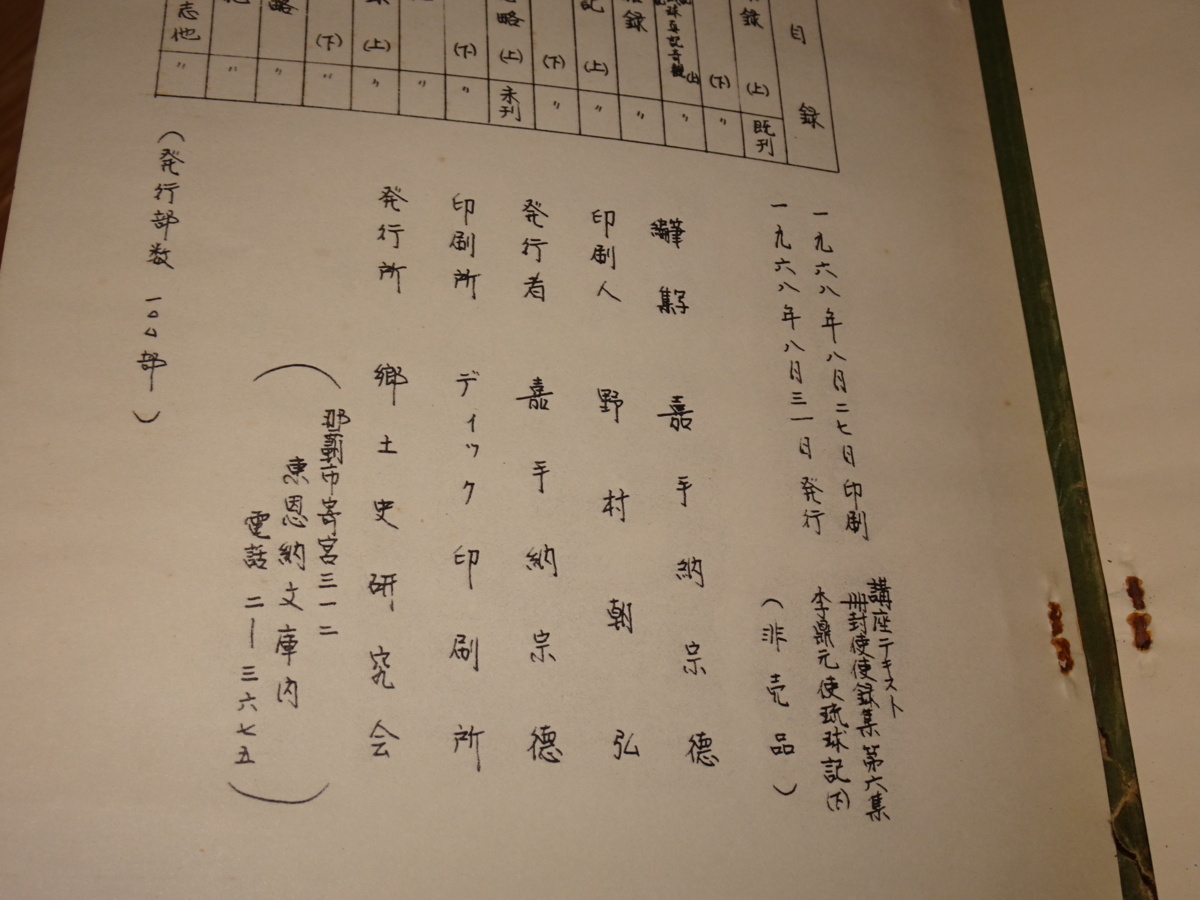 目録
録(上) 既刊
(下) 〃
(上) 〃
録 〃
記(上) 〃
(下) 〃
略(上) 未刊
(下) 〃
〃
(上) 〃
(下) 〃
略 〃
〃
志他 〃
講座テキスト
冊封使使録集第六集
李鼎元使琉球記(下)
一九六八年八月二七日印刷
一九六八年八月三一日発行
(非売品)
嘉手納宗德
印刷人 野村朝弘
発行者 嘉手納宗德
印刷所 ディック印刷所
発行所 郷土史研究会
(那覇市寄宮三一二
東恩納文庫内
電話 二-三六七五)
(発行部数 一〇〇部)